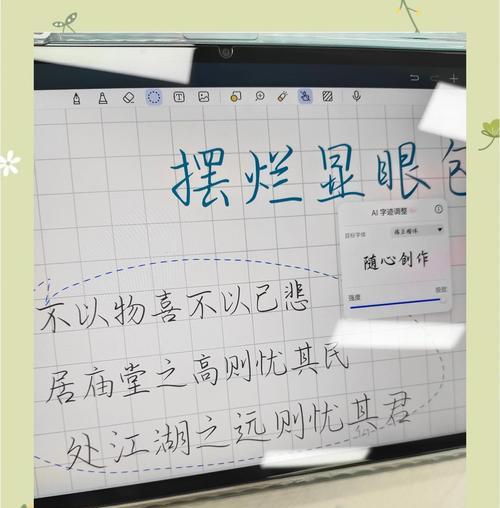 摆烂显眼包
AI 字迹调整
目标字体
随心创作
强度
不以物喜不以己悲
居庙堂之高则忧其民
处江湖之远则忧其君